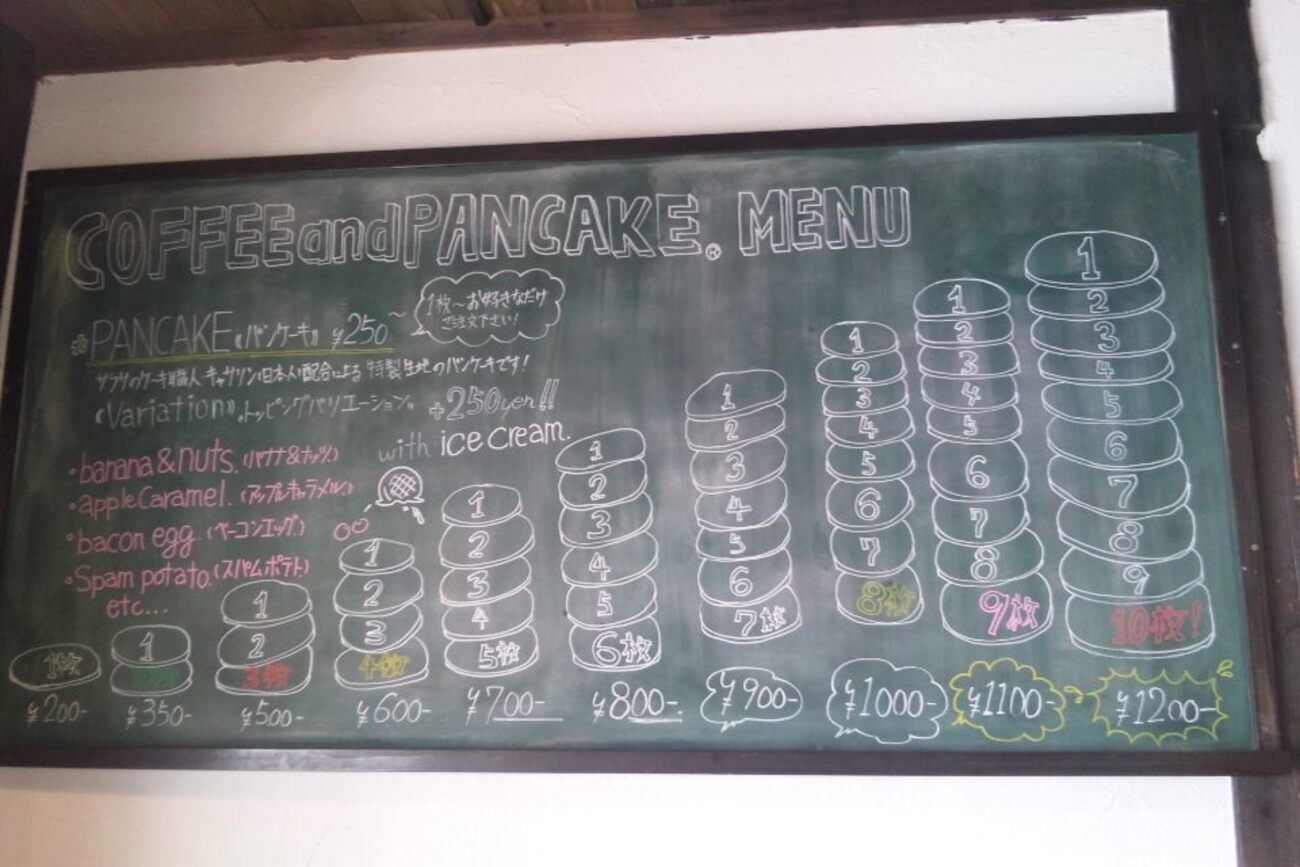 COFFEE and PANCAKE. MENU
PANCAKE《パンケーキ》 ¥250~
1枚~お好きなだけ
ご注文下さい!
サラサのケーキ職人 キャサリン(日本人)配合による 特製生地のパンケーキです!
《Variation》トッピングバリエーション +250yen!!
with ice cream.
・banana & nuts. (バナナ&ナッツ)
・apple Caramel. (アップルキャラメル)
・bacon egg. (ベーコンエッグ)
・Spam potato. (スパムポテト)
etc...
1枚
¥200-
1
¥350-
1
2
3枚
¥500-
1
2
3
4枚
¥600-
1
2
3
4
5枚
¥700-
1
2
3
4
5
6枚
¥800-
1
2
3
4
5
6
7枚
¥900-
1
2
3
4
5
6
7
8枚
¥1000-
1
2
3
4
5
6
7
8
9枚
¥1100-
1
2
3
4
5
6
7
8
9
10枚!
¥1200-